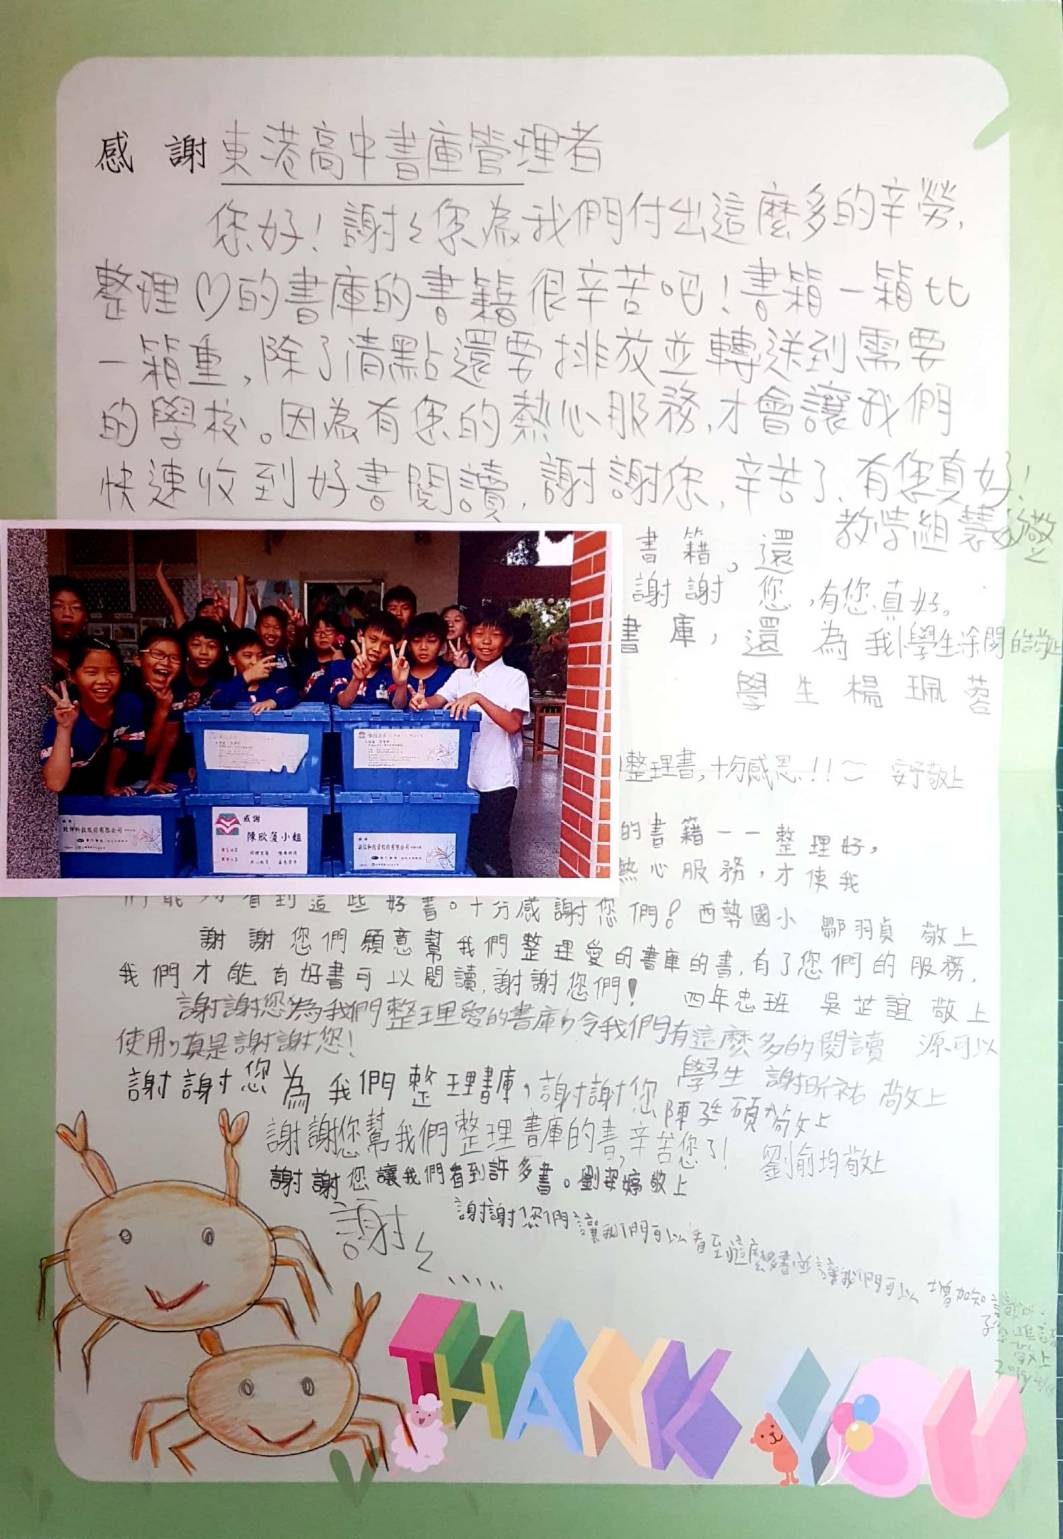 感 謝 東港高中書庫管理者
您好！謝々您為我們付出這麼多的辛勞，
整理♡的書庫的書籍很辛苦吧！書箱一箱比
一箱重，除了清點還要排放並轉送到需要
的學校。因為有您的熱心服務，才會讓我們
快速收到好書閱讀，謝謝您，辛苦了、有您真好！
教學組
書籍。還
謝謝您，有您真好。
書庫，還為我
學生楊珮蓉
整理書，十分感恩！！～ 敬上
感謝
陳欣菱小姐
的書籍一一整理好，
熱心服務，才使我
們能夠看到這些好書。十分感謝您們！西勢國小 鄒羽貞 敬上
謝謝您們願意幫我們整理愛的書庫的書，有了您們的服務，
我們才能有好書可以閱讀，謝謝您們！ 四年忠班 吳芷誼 敬上
謝謝您為我們整理愛的書庫，令我們有這麼多的閱讀 源可以
使用，真是謝謝您！
學生 謝昕祐 敬上
謝謝您為我們整理書庫，謝謝您 陳丞碩敬上
謝謝您幫我們整理書庫的書，辛苦您了！ 劉俞均敬上
謝謝您讓我們看到許多書。劉翠婷敬上
謝謝您們讓我們可以看到這麼多書並讓我們可以增加知識
敬上
謝々.....
THANK YOU